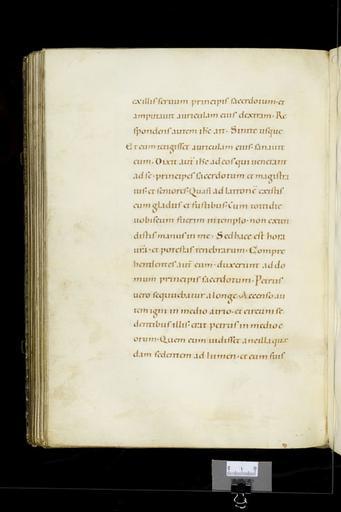 ex illis servum principis sacerdotum· et
amputavit auriculam eius dextram· Re
spondens autem ihc ait· Sinite usque
Et cum tetigisset auriculam eius· sanavit
eum· Dixit aut ihc ad eos qui venerant
ad se· principes sacerdotum et magistra
tus· et seniores· Quasi ad latrone existis
cum gladiis et fustibus· Cum cottidie
vobiscum fuerim in templo· non exten
distis manus in me· Sed haec est hora
vra· et potestas tenebrarum· Compre
hendentes aut eum· duxerunt ad do
mum principis sacerdotum· Petrus
vero sequebatur a longe· Accenso au
tem igni in medio atrio· et circum se
dentibus illis· erat petrus in medio e
orum· Quem cum vidisset ancilla que
dam sedentem ad lumen· et eum fuis